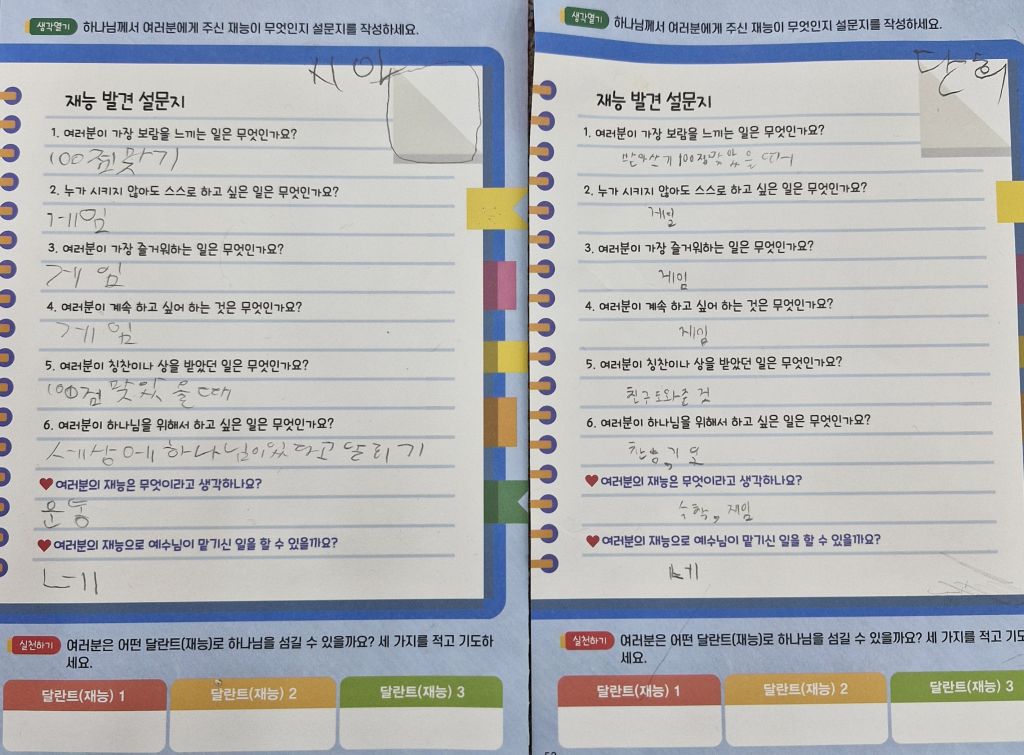 생각열기 하나님께서 여러분에게 주신 재능이 무엇인지 설문지를 작성하세요.
시아
재능 발견 설문지
1. 여러분이 가장 보람을 느끼는 일은 무엇인가요?
100점맞기
2. 누가 시키지 않아도 스스로 하고 싶은 일은 무엇인가요?
게임
3. 여러분이 가장 즐거워하는 일은 무엇인가요?
게임
4. 여러분이 계속 하고 싶어 하는 것은 무엇인가요?
게임
5. 여러분이 칭찬이나 상을 받았던 일은 무엇인가요?
100점 맞았을때
6. 여러분이 하나님을 위해서 하고 싶은 일은 무엇인가요?
세상에 하나님이있다고 달리기
♥여러분의 재능은 무엇이라고 생각하나요?
운동
♥여러분의 재능으로 예수님이 맡기신 일을 할 수 있을까요?
네
실천하기 여러분은 어떤 달란트(재능)로 하나님을 섬길 수 있을까요? 세 가지를 적고 기도하
세요.
달란트(재능) 1 달란트(재능) 2 달란트(재능) 3
생각열기 하나님께서 여러분에게 주신 재능이 무엇인지 설문지를 작성하세요.
단희
재능 발견 설문지
1. 여러분이 가장 보람을 느끼는 일은 무엇인가요?
받아쓰기 100점맞았을때
2. 누가 시키지 않아도 스스로 하고 싶은 일은 무엇인가요?
게임
3. 여러분이 가장 즐거워하는 일은 무엇인가요?
게임
4. 여러분이 계속 하고 싶어 하는 것은 무엇인가요?
게임
5. 여러분이 칭찬이나 상을 받았던 일은 무엇인가요?
친구도와준 것
6. 여러분이 하나님을 위해서 하고 싶은 일은 무엇인가요?
찬송,
♥여러분의 재능은 무엇이라고 생각하나요?
수학, 게임
♥여러분의 재능으로 예수님이 맡기신 일을 할 수 있을까요?
네
실천하기 여러분은 어떤 달란트(재능)로 하나님을 섬길 수 있을까요? 세 가지를 적고 기도
세요.
달란트(재능) 1 달란트(재능) 2 달란트(재능) 3